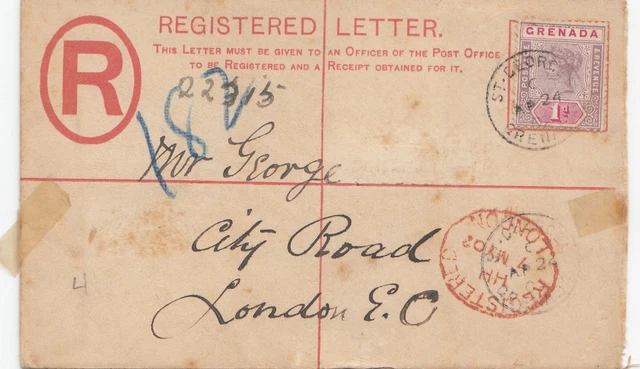 R
REGISTERED LETTER.
THIS LETTER MUST BE GIVEN TO AN OFFICER OF THE POST OFFICE
TO BE REGISTERED AND A RECEIPT OBTAINED FOR IT.
GRENADA
POSTAGE & REVENUE
1D.
ST. GEORGE
AP 24
GREN
22315
182
Mr George
City Road
London E.C
REGISTERED LONDON
HH
7 MY 02
AP 2
4